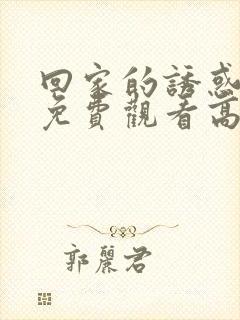 回家的誘惑
免費觀看高
郭麗君